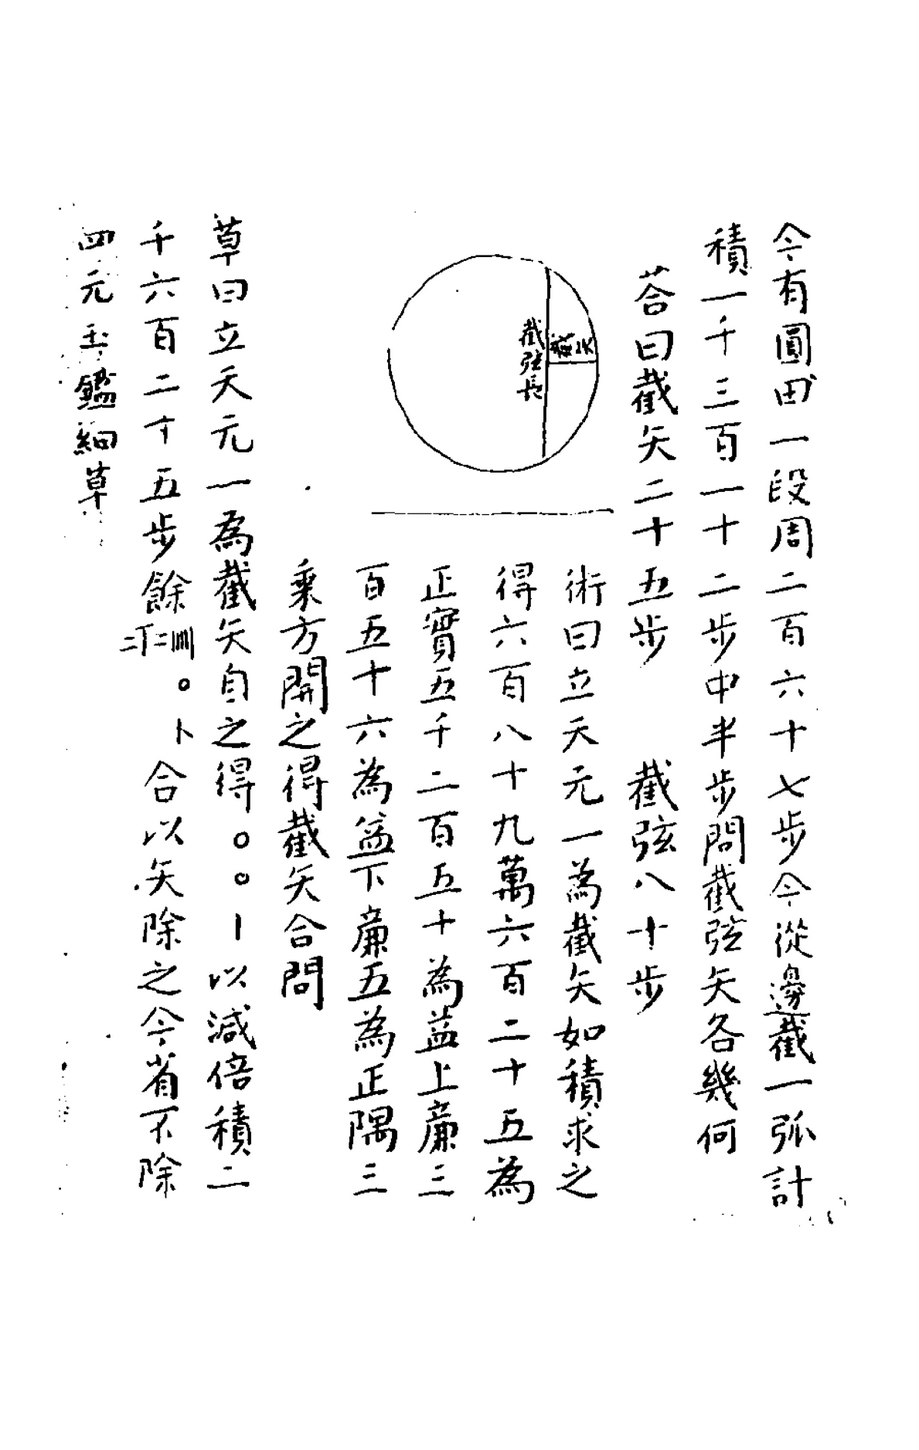 今有圓田一段周二百六十七步今從邊截一弧計
積一千三百一十二步中半步問截弦矢各幾何
荅曰截矢二十五步　截弦八十步
截矢
截弦長
術曰立天元一為截矢如積求之
得六百八十九萬六百二十五為
正實五千二百五十為益上廉三
百五十六為益下廉五為正隅三
乘方開之得截矢合問
草曰立天元一為截矢自之得〇〇〡以減倍積二
千六百二十五步餘〇卜合以矢除之今省不除
四元玉鑑細草